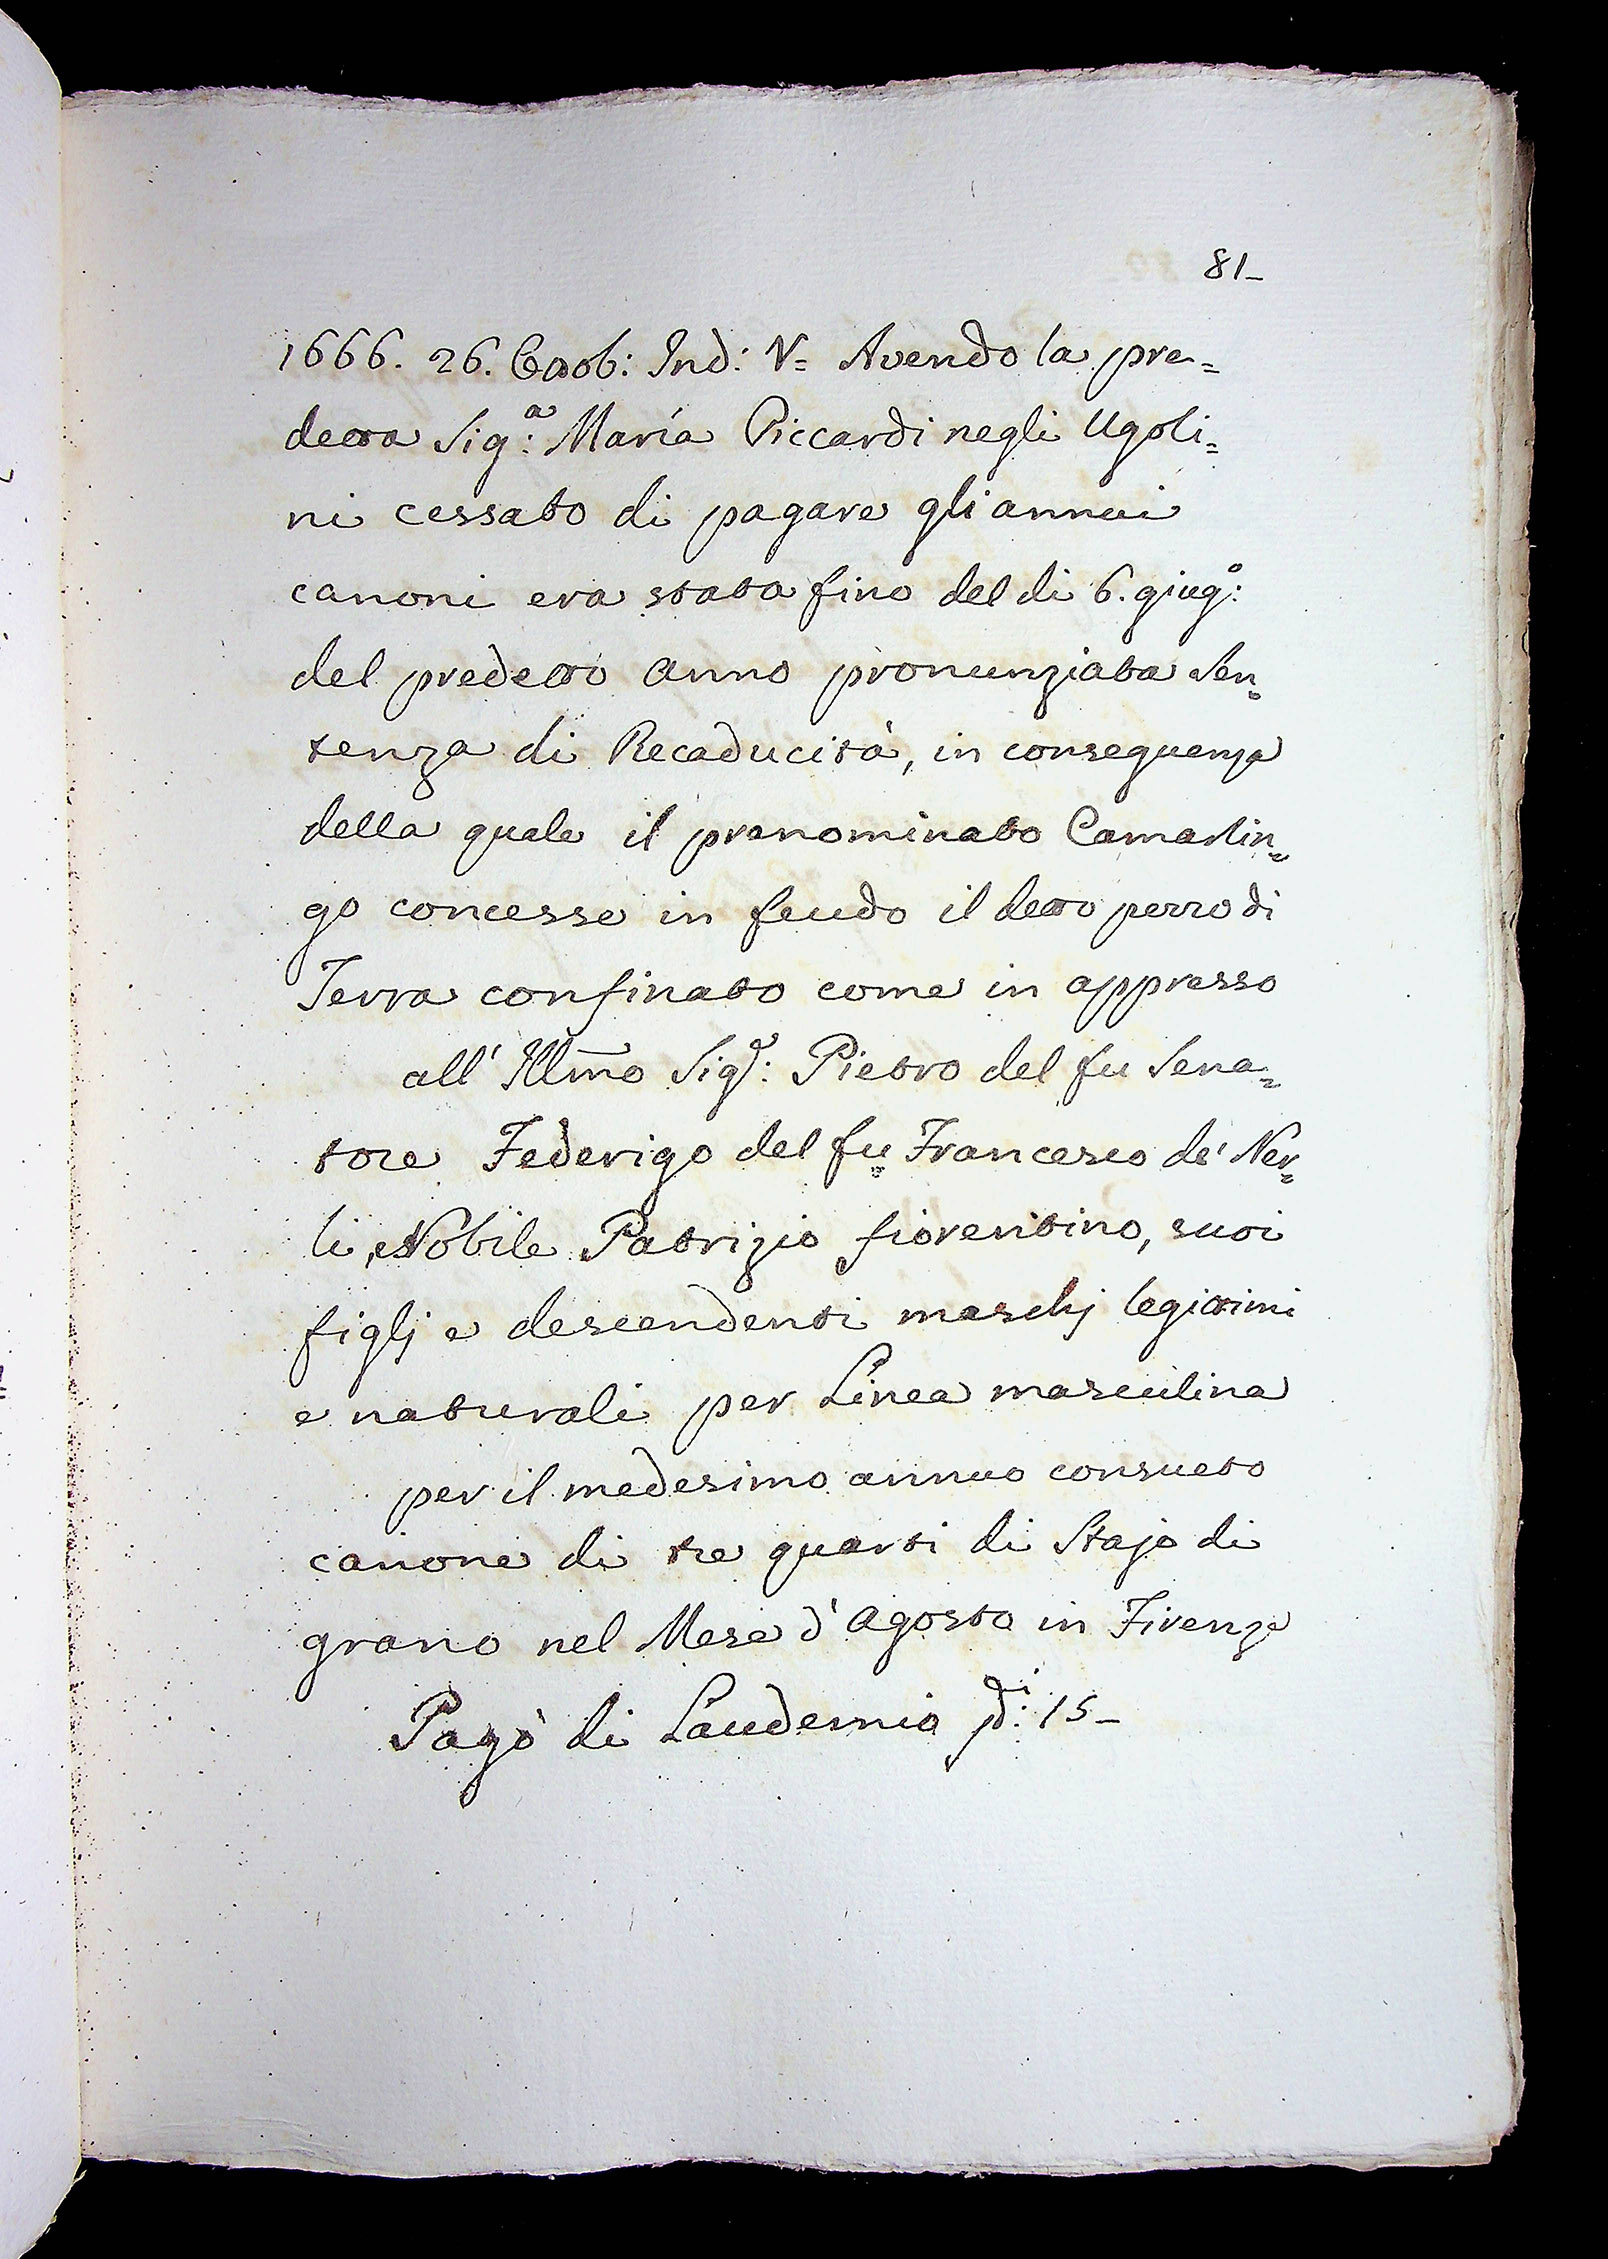 81_
1666. 26. Ottob: Ind: V= Avendo la pre=
detta Sig:ª María Riccardi negli Ugoli=
ni cessato di pagare gli annui
canoni era stata fino del di 6. giug:º
del predetto anno pronunziata Sen=
tenza di Recaducità, in conseguenza
della quale il prenominato Camarlin=
go concesse in feudo il detto pezzo di
Terra confinato come in appresso
all' Illmo Sig:r Pietro del fu Sena=
tore Federigo del fu Francesco de' Ner=
li, Nobile Patrizio fiorentino, suoi
figlj e descendenti maschj legittimi
e naturali per Linea masculina
per il medesimo annuo consueto
canone di tre quarti di Stajo di
grano nel Mese d'Agosto in Firenze
Pagò di Laudemio 15_